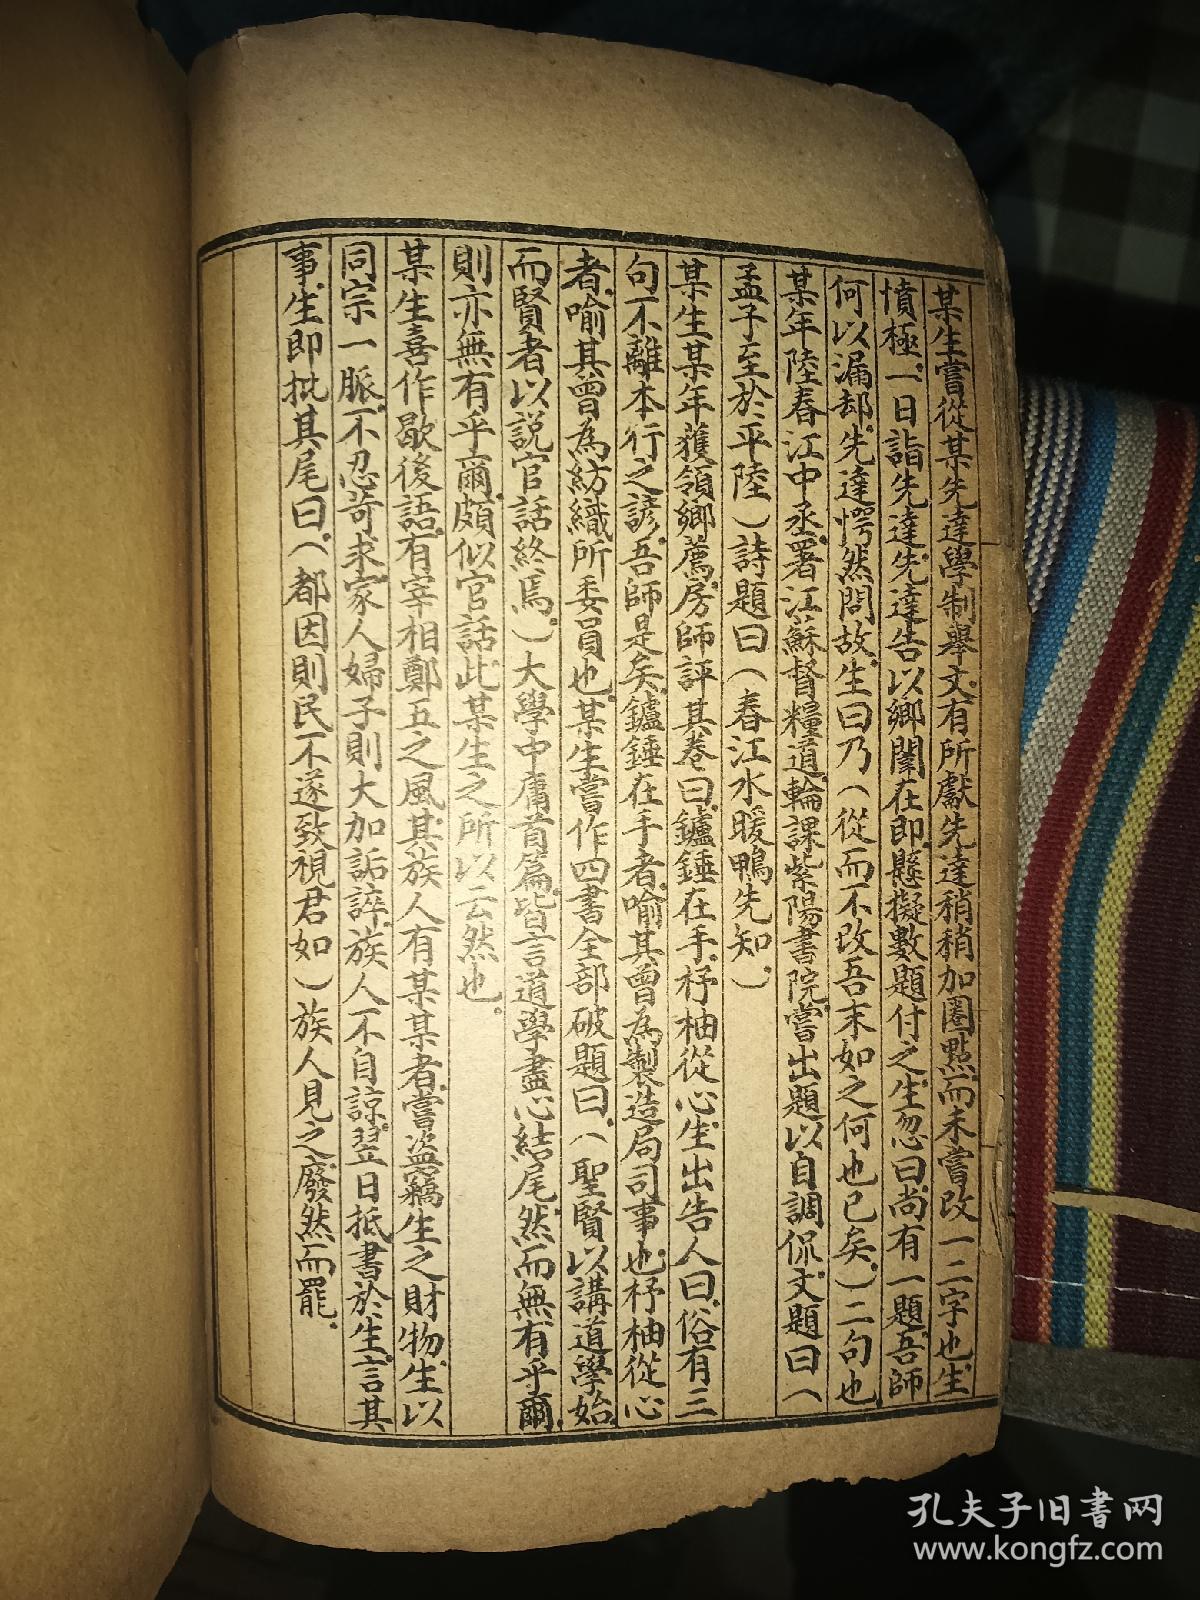 某生嘗從某先達學制舉文有所獻先達稍稍加圈點而未嘗改一二字也生
憤極一日詣先達先達告以鄉闈在即懸擬數題付之生忽曰尚有一題吾師
何以漏却先達愕然問故生曰乃（從而不改吾末如之何也已矣）二句也
某年陸春江中丞署江蘇督糧道輪課紫陽書院嘗出題以自調侃文題曰（
孟子至於平陸）詩題曰（春江水暖鴨先知）
某生某年獲領鄉薦房師評其卷曰鑪錘在手杼柚從心生出告人曰俗有三
句不離本行之諺吾師是矣鑪錘在手者喻其曾為製造局司事也杼柚從心
者喻其曾為紡織所委員也某生嘗作四書全部破題曰（聖賢以講道學始
而賢者以說官話終焉）大學中庸首篇皆言道學盡心結尾然而無有乎爾
則亦無有乎爾頗似官話此某生之所以云然也
某生喜作歇後語有宰相鄭五之風其族人有某某者嘗盜竊生之財物生以
同宗一脈不忍苛求家人婦子則大加詬誶族人不自諒翌日抵書於生言其
事生即批其尾曰（都因則民不遂致視君如）族人見之廢然而罷
孔夫子旧书网
www.kongfz.com